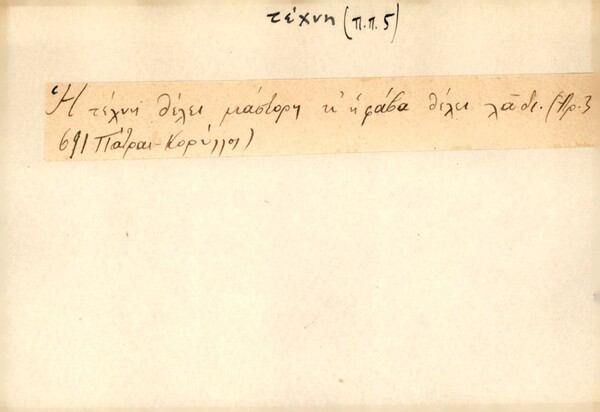 τέχνη (π.π. 5)
Ἡ τέχνη θέλει μάστορη κ' ἡ φάβα θέλει λάδι. (Ἀρ. 3
691 Πάτραι - Κορύλλος)